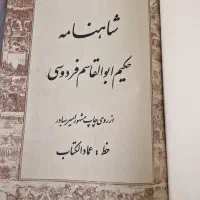 شاهنامه
حکیم ابوالقاسم فردوسی
از روی چاپ مشهور امیربهادر
خط : عمادالکتاب